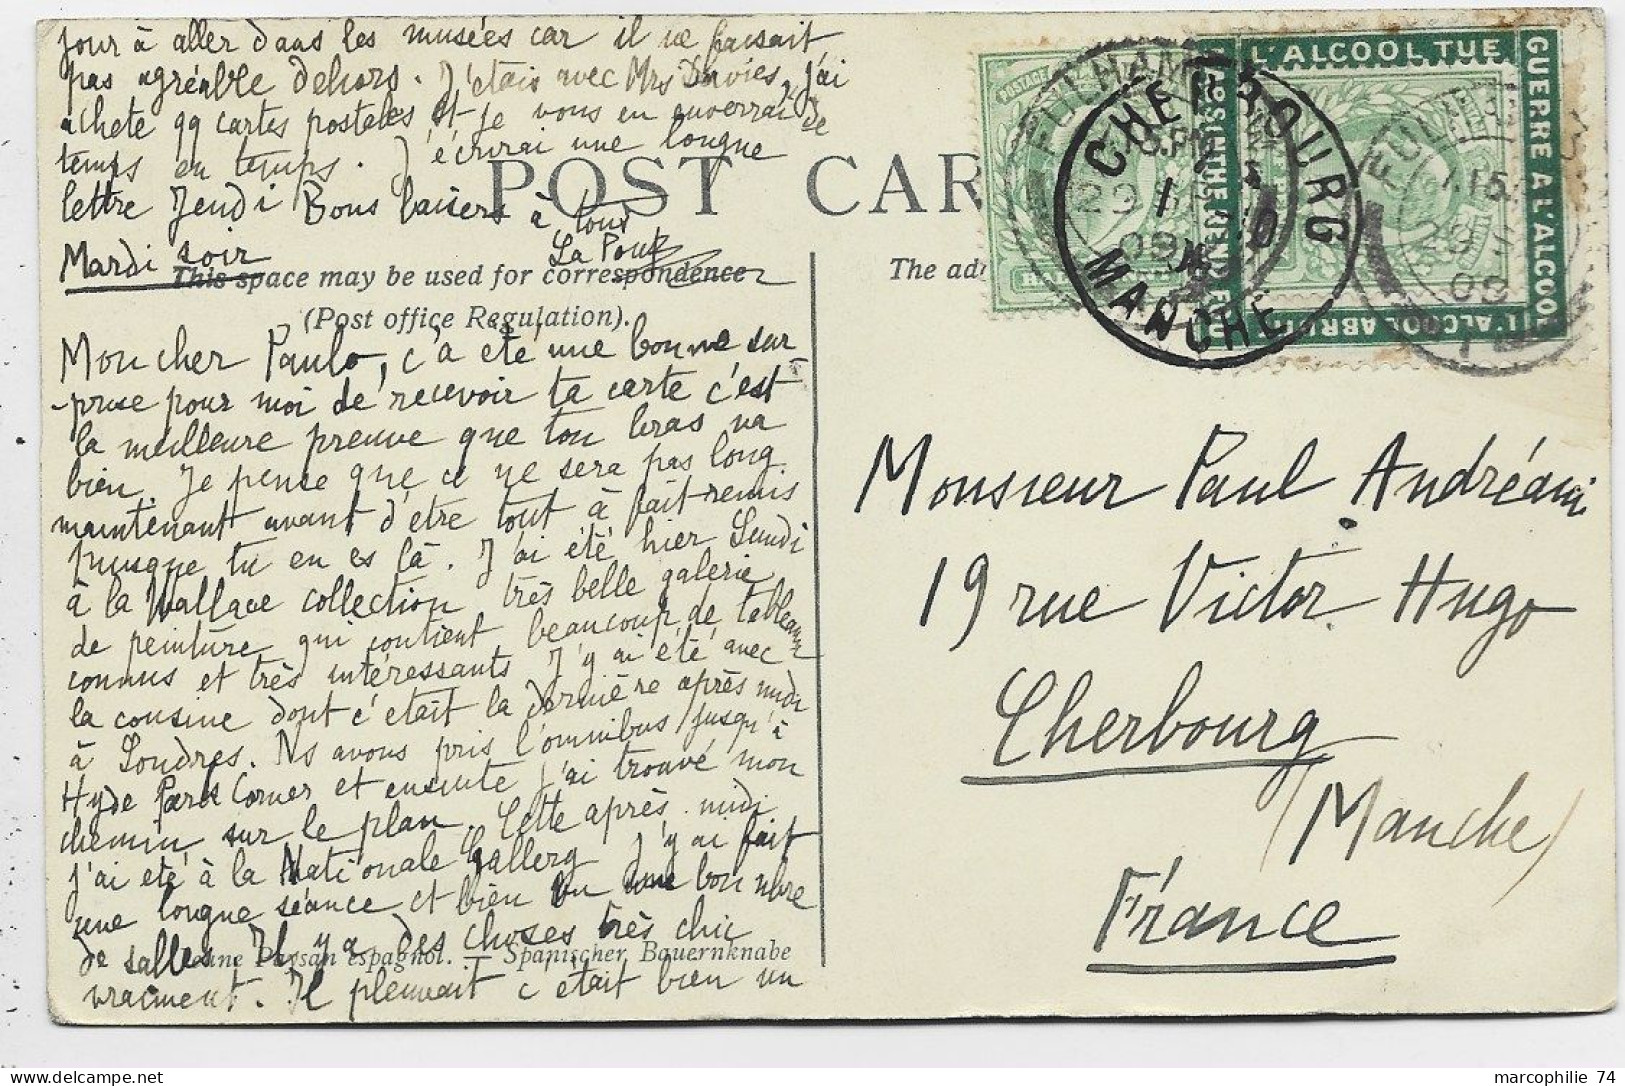 jour à aller dans les musées car il ne faisait
pas agréable dehors. J'étais avec Mrs Davies, j'ai
acheté 99 cartes postales et je vous en enverrai de
temps en temps. J'écrirai une longue
lettre Jeudi Bons baisers à tous
Mardi soir
POST CAR
This space may be used for correspondence
(Post office Regulation).
The ad
Mon cher Paulo, c'a été une bonne sur
-prise pour moi de recevoir ta carte c'est
la meilleure preuve que ton bras va
bien. Je pense que ce ne sera pas long
maintenant avant d'être tout à fait remis
puisque tu en es là. J'ai été hier Lundi
à la Wallace collection très belle galerie
de peinture qui contient beaucoup de tableaux
connus et très intéressants J'y ai été avec
la cousine dont c'était la dernière après midi
à Londres. Ns avons pris l'omnibus jusqu'à
Hyde Park Corner et ensuite j'ai trouvé mon
chemin sur le plan. Cette après-midi
j'ai été à la Nationale Gallery J'y ai fait
une longue séance et bien vu une bon nbre
de salles Il y a des choses très chic
vraiment. Il pleuvait c'était bien un
Jeune Paysan espagnol. — Spanischer Bauernknabe
L'ALCOOL TUE
GUERRE A L'ALCOOL
L'ALCOOL ABR
CHERBOURG
MANCHE
FULHAM
09
Monsieur Paul Andréani
19 rue Victor Hugo
Cherbourg
(Manche)
France
marcophilie 74